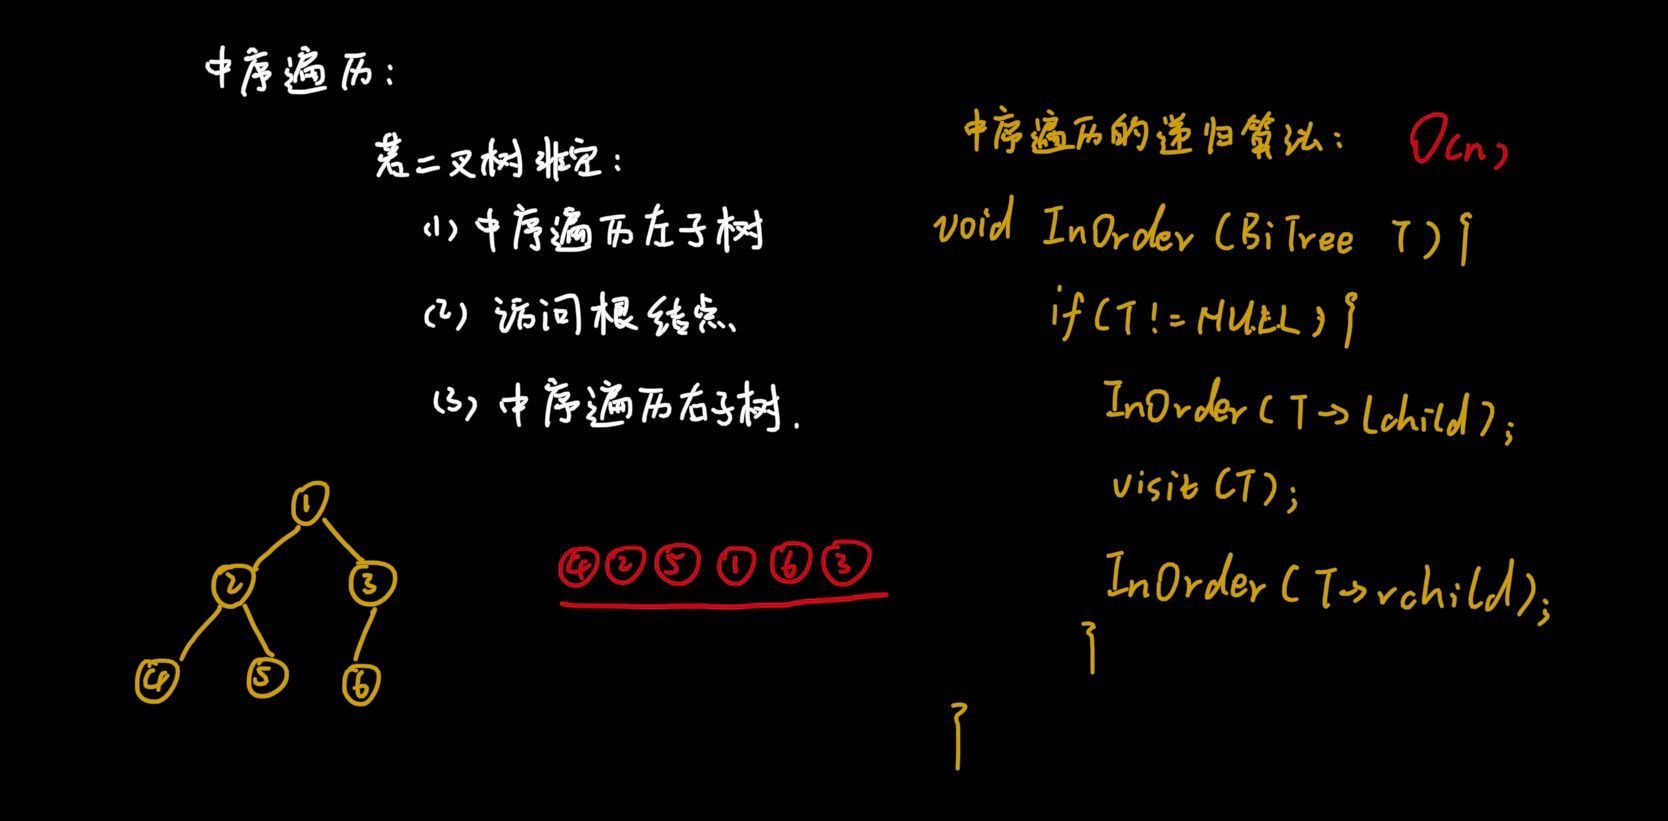 中序遍历:
若二叉树非空:
(1) 中序遍历左子树
(2) 访问根结点、
(3) 中序遍历右子树.
1
2 3
4 5 6
4 2 5 1 6 3
中序遍历的递归算法: O(n)
void InOrder (BiTree T) {
if (T != NULL) {
InOrder (T→lchild);
visit (T);
InOrder (T→rchild);
}
}